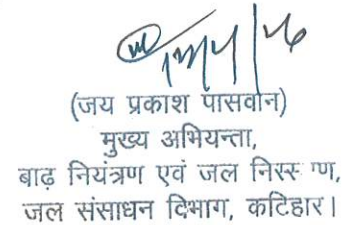 (जय प्रकाश पासवान)
मुख्य अभियन्ता,
बाढ़ नियंत्रण एवं जल निस्स ण,
जल संसाधन विभाग, कटिहार।